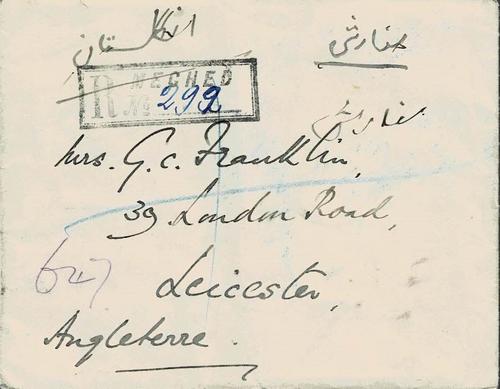 انگلستان
سفارشی
R MECHED
No 299
سفارشی
Mrs. G.C. Franklin,
39 London Road,
Leicester,
Angleterre.
647